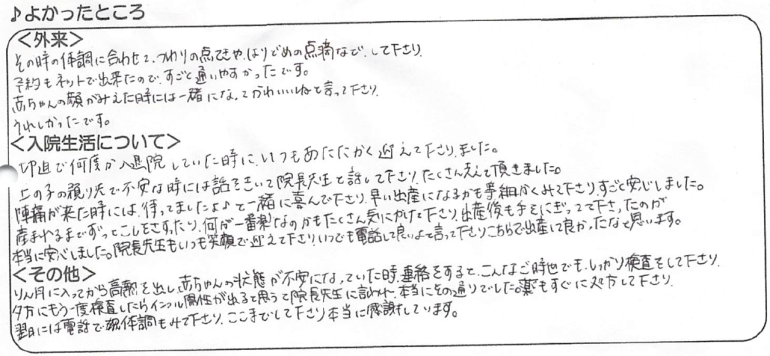 ♪よかったところ
<外来>
その時の体調に合わせて、つわりの点てきや、はりどめの点滴など、して下さり、
予約もネットで出来たので、すごと通いやすかったです。
赤ちゃんの顔がみえた時には一緒になってかわいいねと言って下さり、
うれしかったです。
<入院生活について>
切迫で何度か入退院していた時に、いつもあたたかく迎えて下さりました。
上の子の預り先で不安な時には話をきいて院長先生と話して下さり、たくさん支えて頂きました。
陣痛が来た時には、待ってましたよ♪と一緒に喜んで下さり、早い出産になるかも事細かくみて下さり、すごと安心しました。
産まれるまでずっとこしをさすったり、何が一番楽なのかもたくさん気にかけて下さり、出産後も手をにぎって下さったのが
本当に安心しました。院長先生もいつも笑顔で迎えて下さり、いつでも電話して良いよと言って下さりこちらで出産して良かったなと思います。
<その他>
りん月に入ってから高熱を出し、赤ちゃんの状態が不安になっていた時、連絡をすると、こんなご時世でも、しっかり検査をして下さり、
夕方にもう一度検査したらインフル陽性が出ると思うと院長先生に言われ、本当にその通りでした。薬もすぐに処方して下さり、
翌日には電話で体調もみて下さり、ここまでして下さり本当に感謝しています。